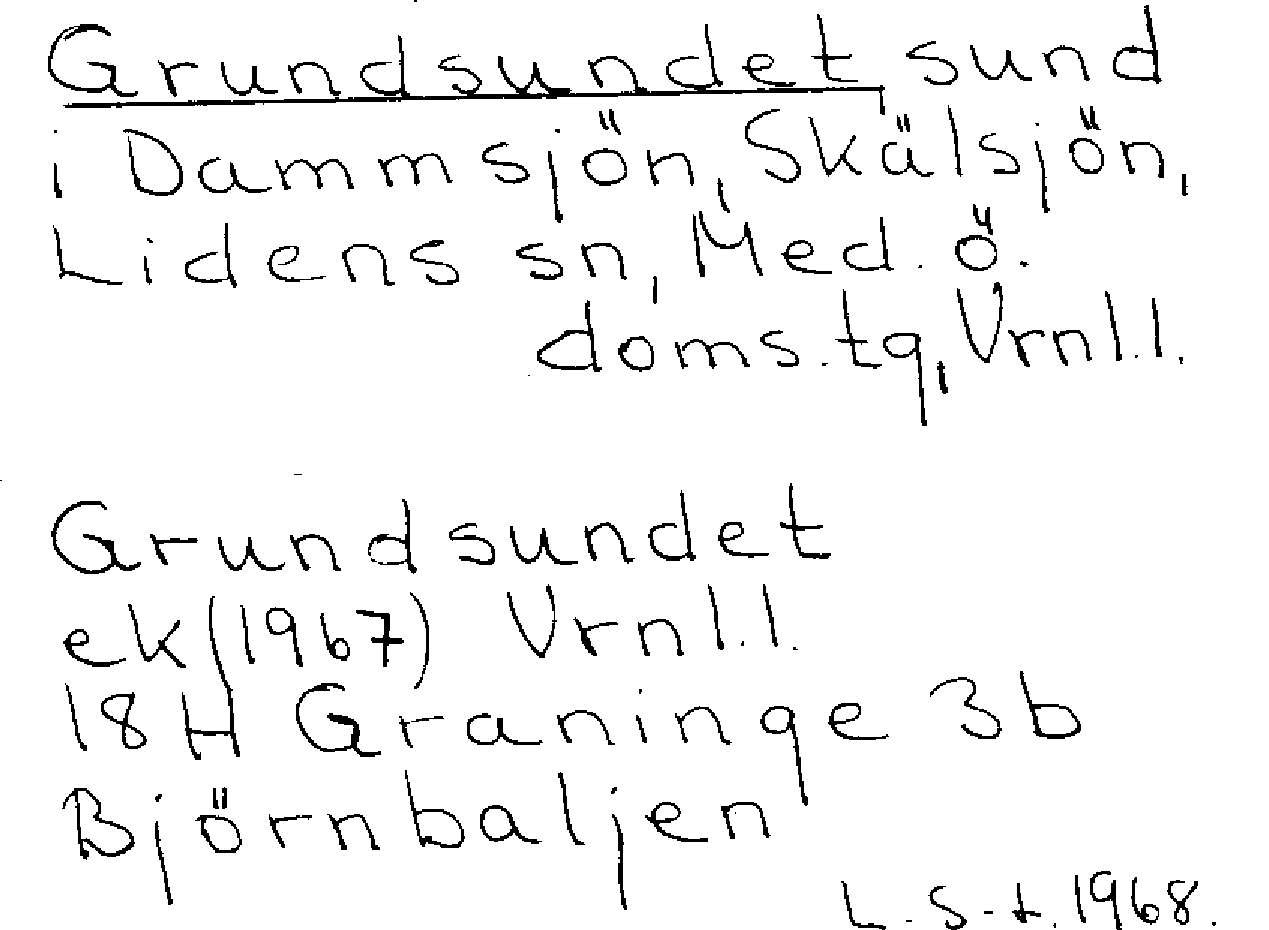 Grundsundet sund
i Dammsjön, Skälsjön,
Lidens sn, Med. ö.
doms.tg, Vrnl.l.
Grundsundet
ek (1967) Vrnl.l.
18H Graninge 3b
Björnbaljen
L. S-t. 1968.